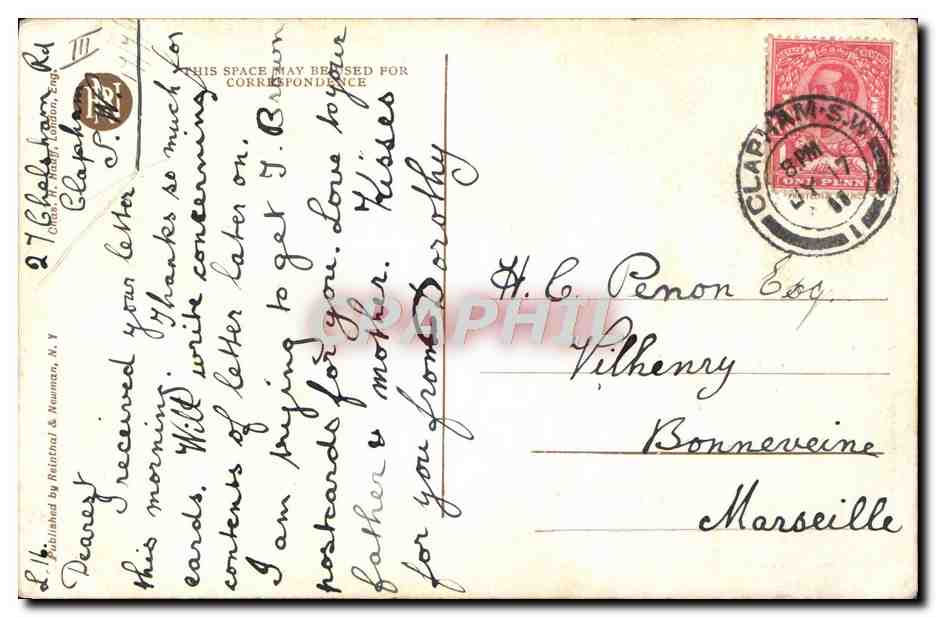 III
27 Chelsham Rd
Clapham
S.W.
L.16.
Dearest
I received your letter
this morning. Thanks so much for
cards. Will write concerning
contents of letter later on.
I am trying to get J. Brown
postcards for you. Love to your
father & mother. Kisses
for you from Dorothy
THIS SPACE MAY BE USED FOR
CORRESPONDENCE
Published by Reinthal & Newman, N. Y
Chas. H. Hauff, London, Eng.
CLAPHAM·S.W
8 PM
17
11
1
ONE PENNY
H. C. Penon Esq.
Vilhenry
Bonneveine
Marseille
CPAPHIL